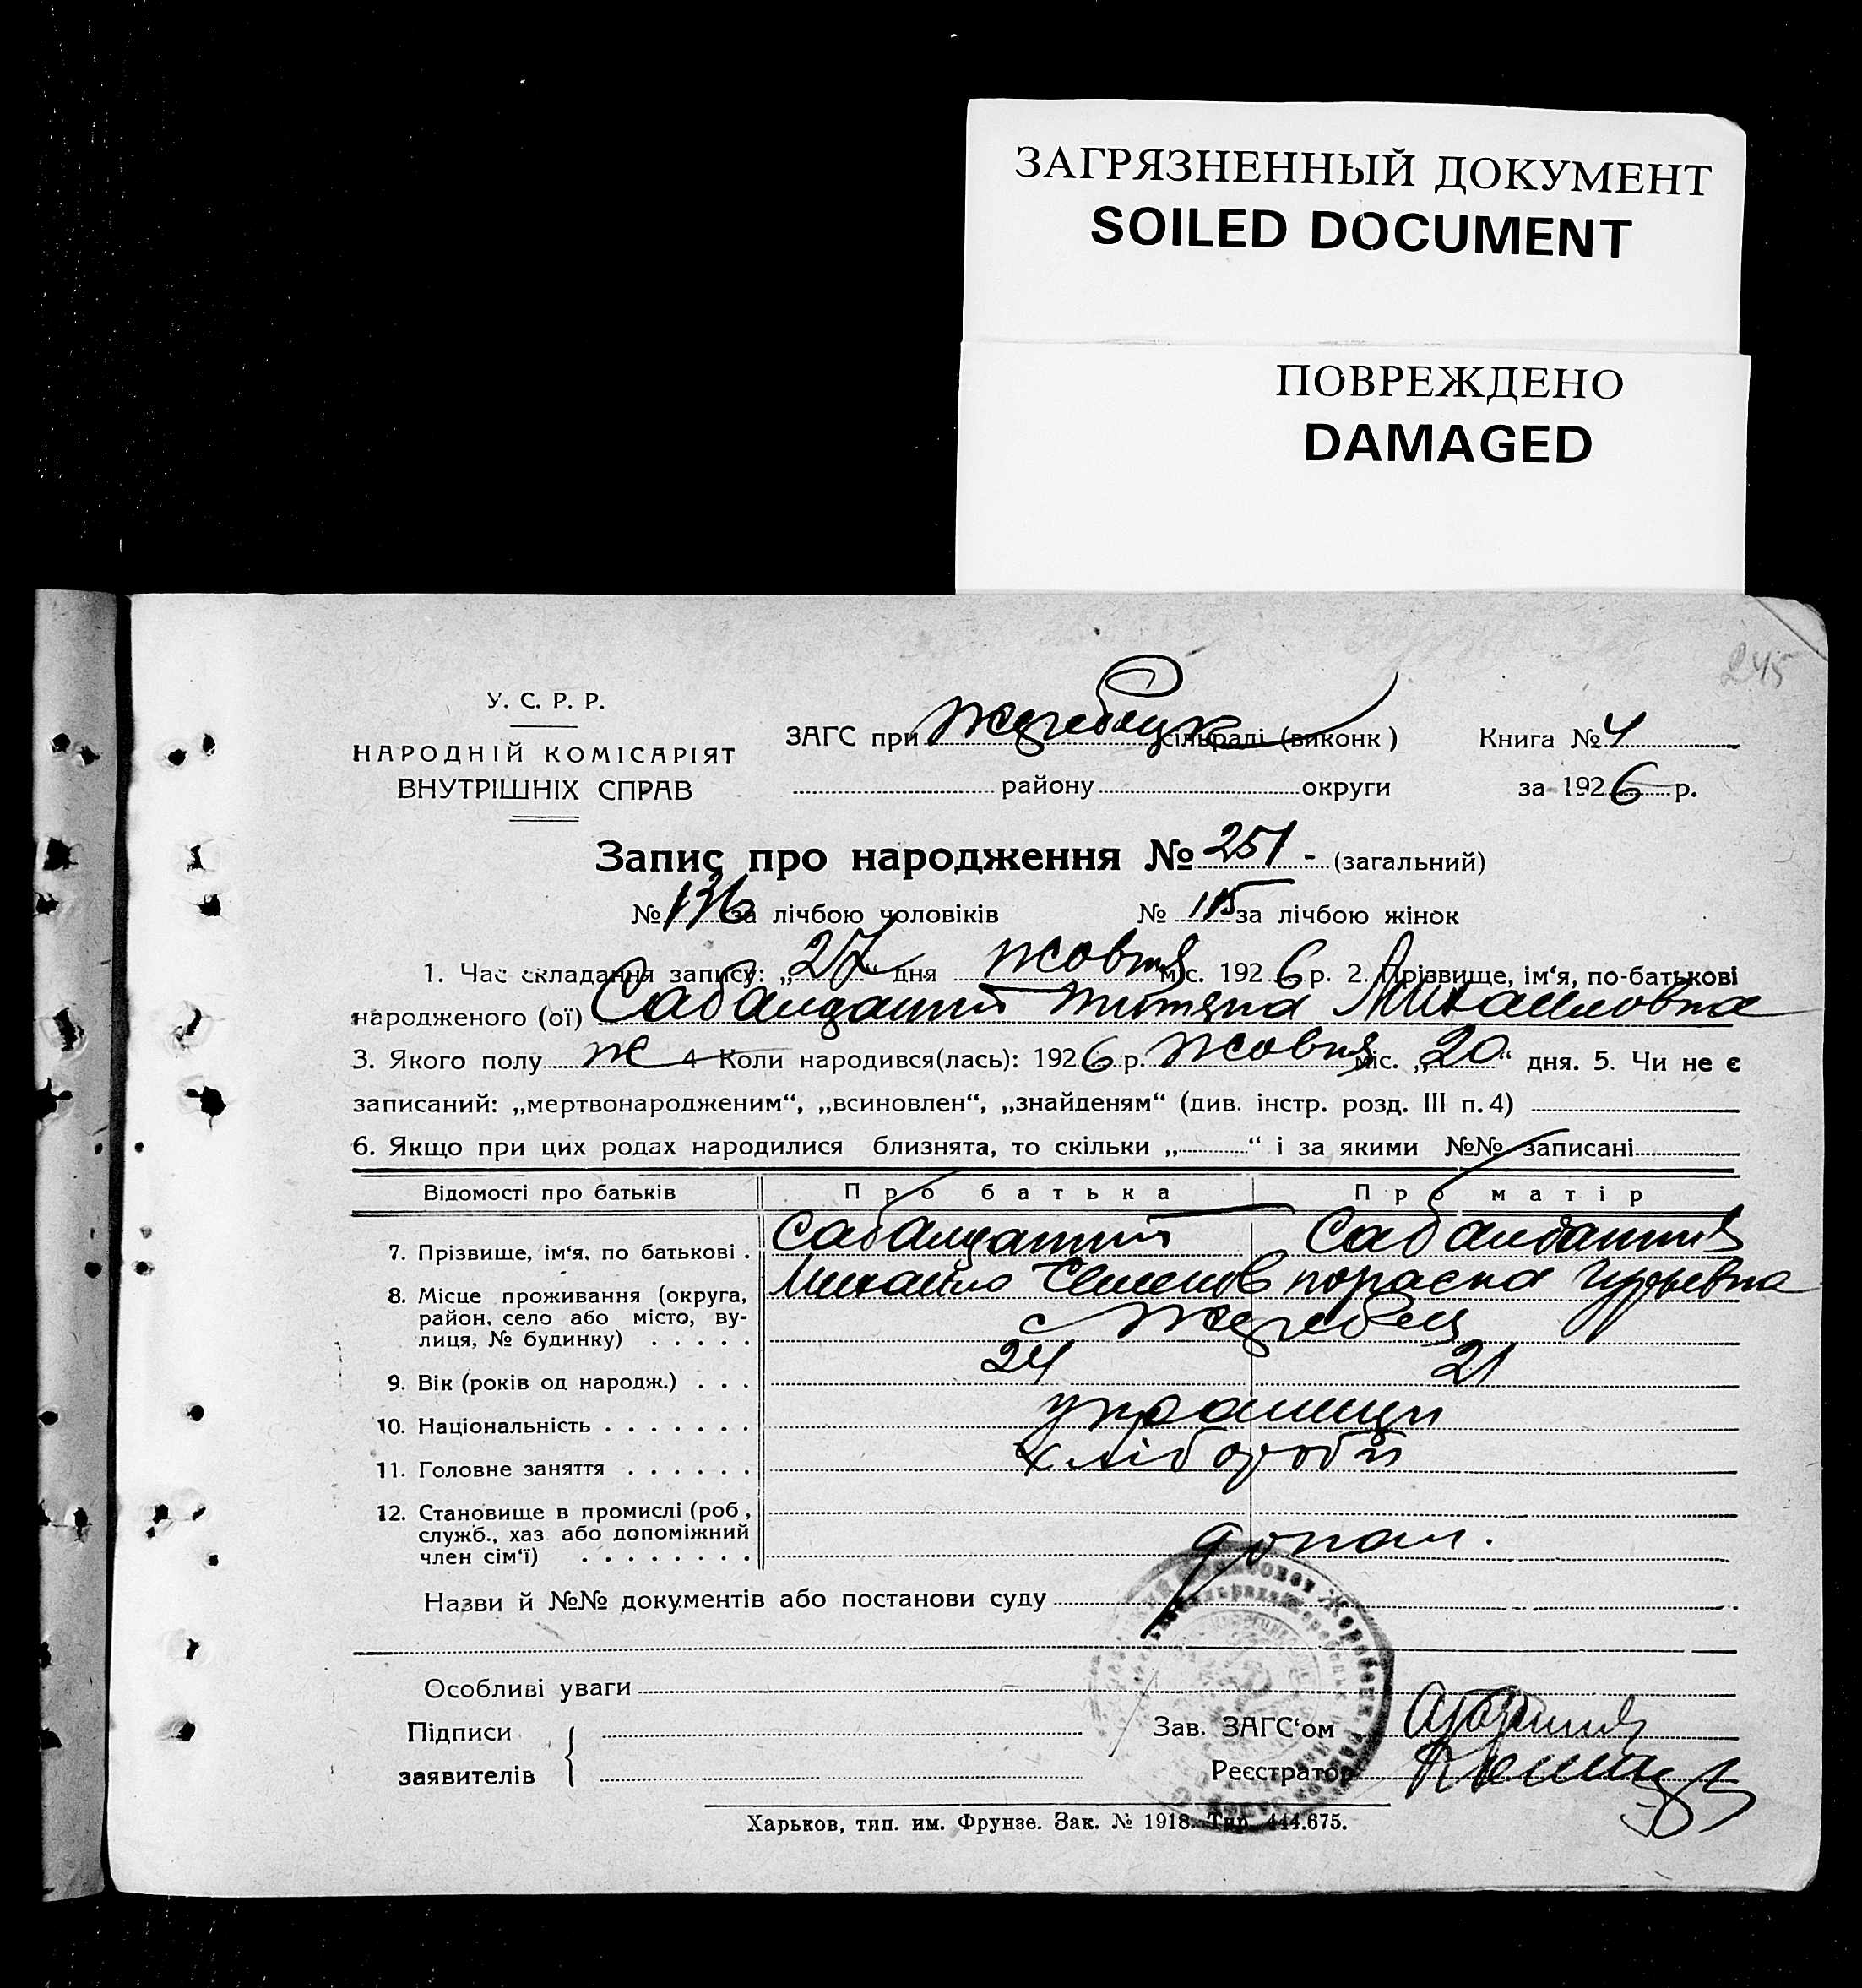 ЗАГРЯЗНЕННЫЙ ДОКУМЕНТ
SOILED DOCUMENT
ПОВРЕЖДЕНО
DAMAGED
245
У. С. Р. Р.
НАРОДНІЙ КОМІСАРІЯТ
ВНУТРІШНІХ СПРАВ
ЗАГС при Жеребецк сільраді (виконк)
району округи
Книга № 4
за 1926 р.
Запис про народження № 251 - (загальний)
№ 136 за лічбою чоловіків № 115 за лічбою жінок
1. Час складання запису: „27“ дня жовтня міс. 1926 р. 2. Прізвище, ім‘я, по-батькові
народженого (ої) Сабалдатий Титяна Михаиловна
3. Якого полу ж 4 Коли народився(лась): 1926 р. жовтня міс. „20“ дня. 5. Чи не є
записаний: „мертвонародженим“, „всиновлен“, „знайденям“ (див. інстр. розд. III п. 4)
6. Якщо при цих родах народилися близнята, то скільки „ “ і за якими №№ записані
Відомості про батьків Про батька Про матір
7. Прізвище, ім‘я, по батькові Сабалдатий Сабалдатия
Михаило Семенов пораска
8. Місце проживання (округа,
район, село або місто, ву-
лиця, № будинку)
с Жеребец
9. Вік (років од народж.) 24 21
10. Національність українци
11. Головне заняття хлібороби
12. Становище в промислі (роб,
служб., хаз або допоміжний
член сім‘ї)
допом.
Назви й №№ документів або постанови суду
Особливі уваги
Підписи
заявителів
Зав. ЗАГС‘ом
Реєстратор
Харьков, тип. им. Фрунзе. Зак. № 1918. Тир. 444.675.